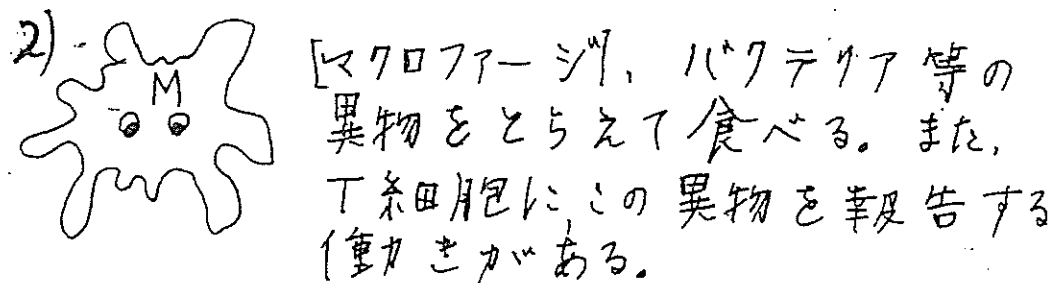 2)
M
[マクロファージ], バクテリア等の
異物をとらえて食べる。また,
T細胞に,この異物を報告する
働きがある。